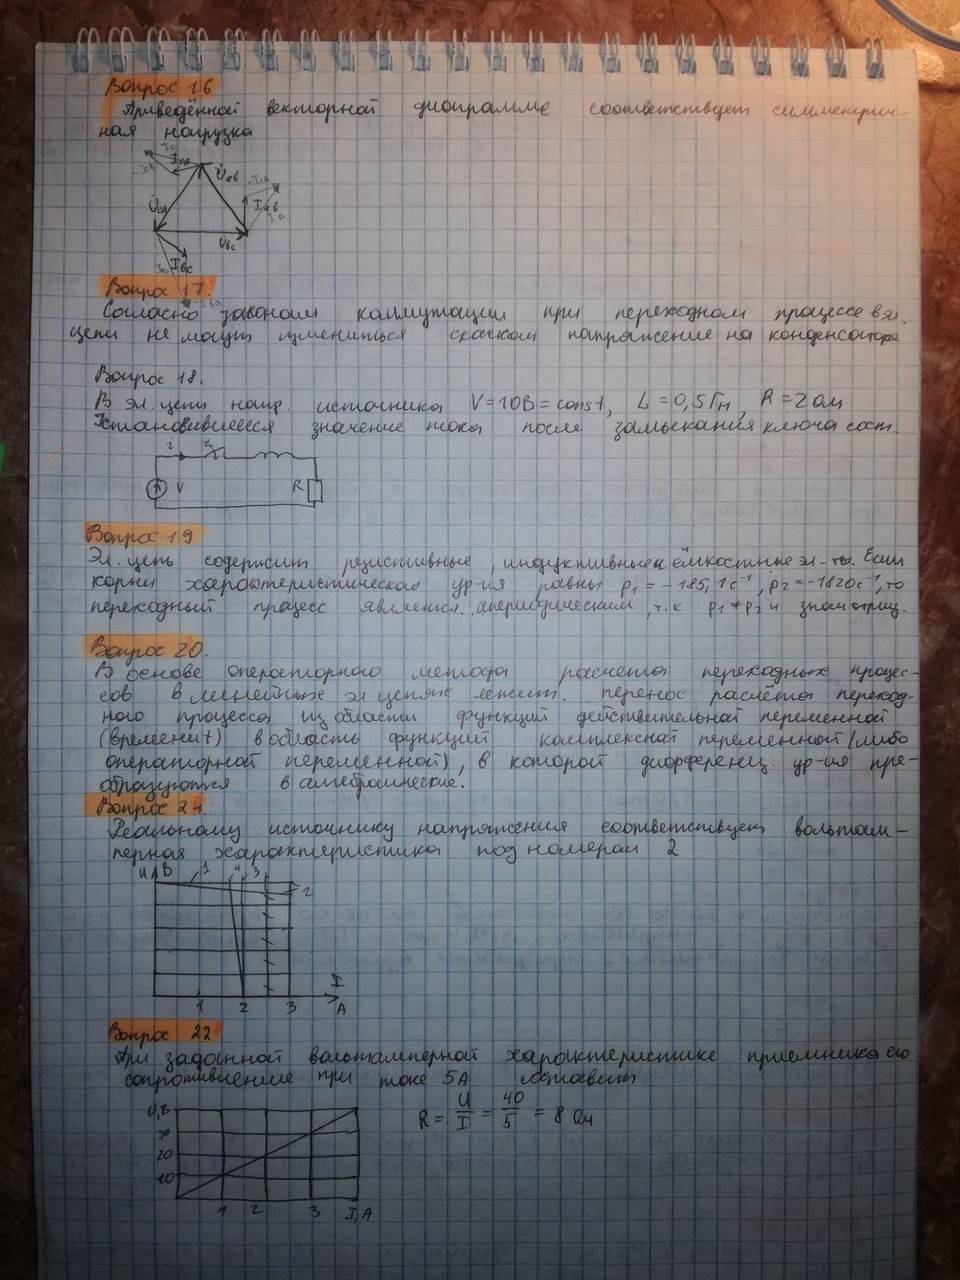 Вопрос 16
Приведённой векторной диаграмме соответствует симметрич-
ная нагрузка
U̇ab
U̇ca
U̇bc
Вопрос 17.
Согласно законам коммутации при переходном процессе в эл.
цепи не могут измениться скачком напряжение на конденсаторе
Вопрос 18.
В эл. цепи напр. источника V=10В=const, L=0,5Гн, R=2ом
Установившееся значение тока после замыкания ключа сост.
i
V R
Вопрос 19
Эл. цепь содержит резистивные, индуктивные и ёмкостные эл-ты. Если
корни характеристического ур-ия равны p₁=-185,1с⁻¹, p₂=-1820с⁻¹, то
переходный процесс является апериодическим, т.к p₁≠p₂ и знак отриц.
Вопрос 20.
В основе операторного метода расчёта переходных процес-
сов в линейных эл цепях лежит. перенос расчёта переход-
ного процесса из области функций действительной переменной
(времени t) в область функций комплексной переменной (либо
операторной переменной), в которой дифференц. ур-ия пре-
образуются в алгебраические.
Вопрос 21.
Реальному источнику напряжения соответствует вольтам-
перная характеристика под номером 2
U В 1 4 3
2
I
1 2 3 A
Вопрос 22
При заданной вольтамперной характеристике приемника его
сопротивление при токе 5А составит
R = U/I = 40/5 = 8 Ом
U,В
30
20
10
1 2 3 I,A